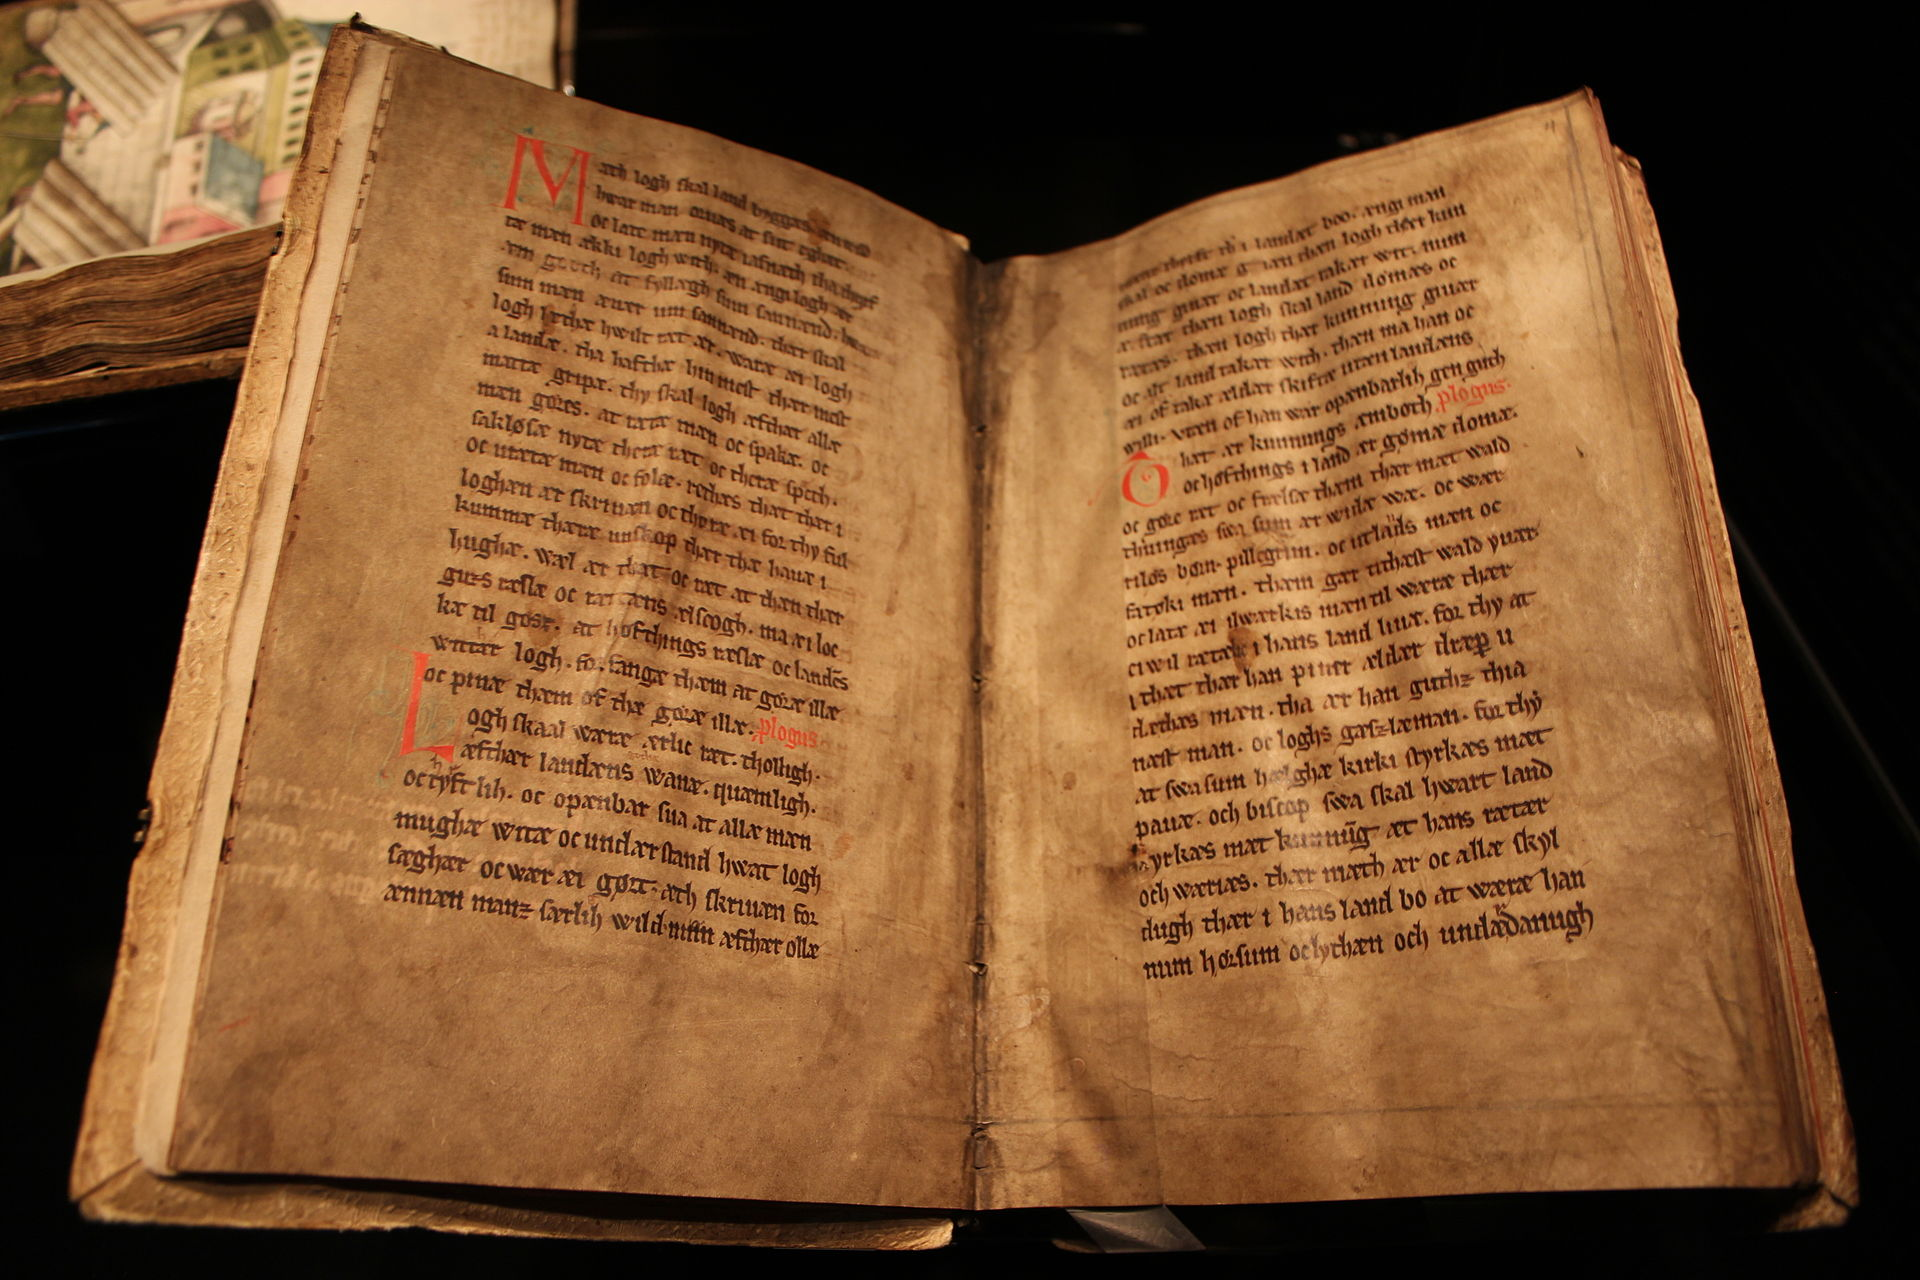 M æth logh skal land byggæs. æn wild
hwar man ornæs at sitt eghæt.
oc late mæn nytæ iafnæth tha thyrf
tæ mæn ækki logh with. æn ængi logh ær
æm gooth at fyllægh sum sannænd. hwaræ
sum mæn æuær um sannænd. thær skal
logh letæ hwilt ræt ær. waræ æi logh
a landæ. tha hafthæ hin mest thær mest
mattæ gripæ. thy skal logh æfthær allæ
mæn gøræs. at rætæ mæn oc spakæ. oc
sakløsæ nytæ theræ ræt oc theræ spech.
oc urætæ mæn oc folæ. rethæs that thær i
loghæn ær skriuæn oc thoræ æi for thy ful
kummæ theræ unskop thær the hauæ i
hughæ. wæl ær that oc ræt at thæn thær
guts ræslæ oc rætæns ælscogh. ma æi loc
kæ til gozs. at høfthings ræslæ oc landens
wittær logh. for fangæ thæm at gøræ illæ
oc pinæ thæm of the gøræ illæ. plogus
L ogh skaal wæræ ærlic ræt. tholligh.
æfthær landæns wanæ. quæmligh.
oc tyftlih. oc opænbar sua at allæ mæn
mughæ witæ oc undærstand hwat logh
sæghær oc wær æi gørt. æth skriuæn for
ænnæn manz særlih wild. num æfthær ollæ
mænz therfæ thær i landæt boo. ængi man
skal oc dømæ gen thæn logh thær kun
nung giuær oc landæt takær wit. num
æftær thæn logh skal land dømæs oc
rætæs. thæn logh thær kunnung giuær
oc alt land takær with. thæn ma han oc
æi of takæ ældær skiftæ utæn landæns
willi. utæn of han war opænbarlih gen guth
Thæt ær kunnungs æmboth plogus.
oc høfthings i land ær gømæ domæ.
oc gøre ræt oc frælsæ thæm thær mæt wald
thuingæs swa sum ær widæ wæ. oc wær
riløs børn. pillegrim. oc utlænds mæn oc
fatøki mæn. thæm gær tithæst wald yuær.
oc latæ æi ilwærkis mæn til wæræ thær
ei wil rætæs i hans land liuæ. for thy at
i that thær han pinær ældær dræpær u
dethæs mæn. tha ær han guthz thia
næst man. oc loghs gætzlæman. for thy
at swa sum hælghæ kirki styrkæs mæt
pauæ. och biscop swa skal hwart land
styrkæs mæt kunnung æt hans rætær
och wæriæs. thær mæth ær oc allæ skyl
dugh thær i hans land bo at wæræ han
num hørsum oc lythæn och undædanugh